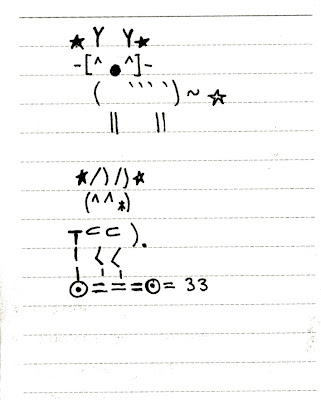 ★ Y Y ★
-[^ ● ^]-
( ` ` ` ` ) ~ ☆
|| ||
★ /) /) ★
(^ ^ *)
T ⊂ ⊂ ).
| < <
| ı ı
⊙ = = = ⊙ = 33